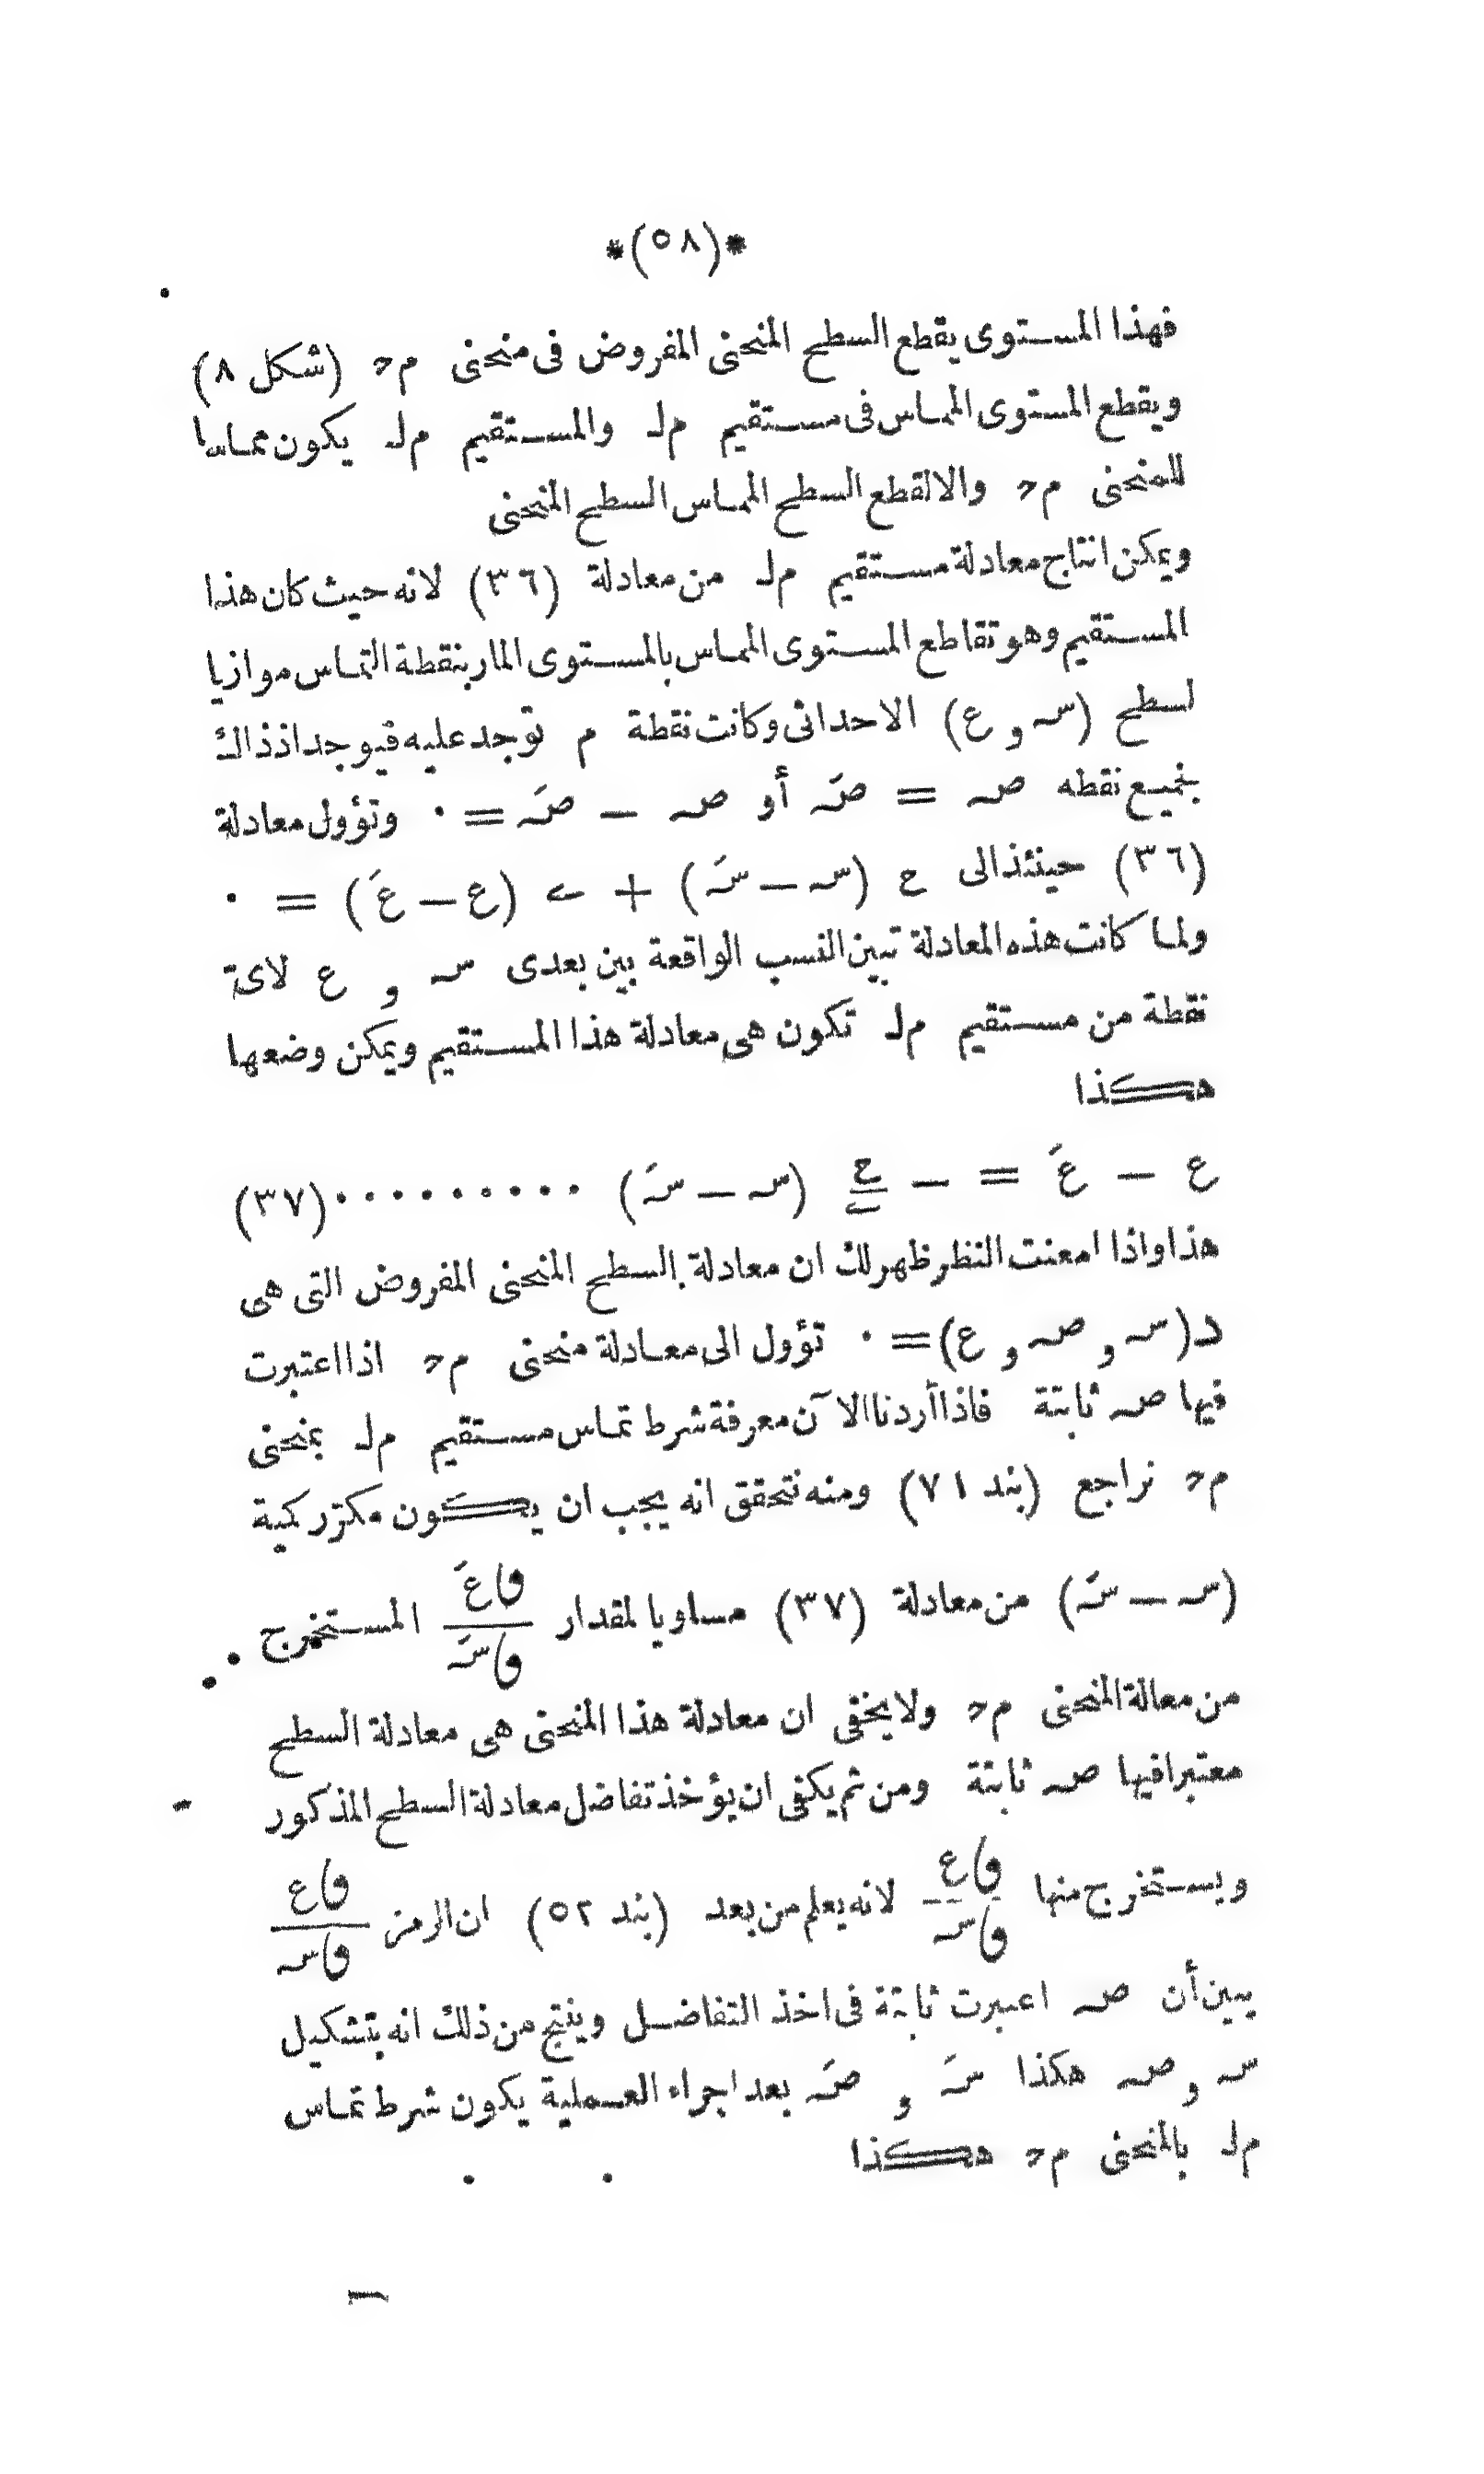 *(٥٨)*
فهذا المستوى يقطع السطح المنحنى المفروض فى منحنى م حـ (شكل ٨)
ويقطع المستوى المماس فى مستقيم م لـ والمستقيم م لـ يكون مماسا
للمنحنى م حـ والالقطع السطح المماس السطح المنحنى
ويمكن انتاج معادلة مستقيم م لـ من معادلة (٣٦) لانه حيث كان هذا
المستقيم وهو تقاطع المستوى المماس بالمستوى المار بنقطة التماس موازيا
لسطح (سـ و ع) الاحداثى وكانت نقطة م توجد عليه فيوجد اذ ذاك
بجميع نقطه صـ = صـَ أو صـ − صـَ = ٠ وتؤول معادلة
(٣٦) حينئذ الى ح (سـ − سـَ) + ى (ع − عَ) = ٠
ولما كانت هذه المعادلة تبين النسب الواقعة بين بعدى سـ و ع لاى
نقطة من مستقيم م لـ تكون هى معادلة هذا المستقيم ويمكن وضعها
هكذا
ع − عَ = − ح/ى (سـ − سـَ) ٠٠٠٠٠٠٠٠٠ (٣٧)
هذا واذا امعنت النظر ظهر لك ان معادلة السطح المنحنى المفروض التى هى
د(سـ و صـ و ع) = ٠ تؤول الى معادلة منحنى م حـ اذا اعتبرت
فيها صـ ثابتة فاذا أردنا الآن معرفة شرط تماس مستقيم م لـ بمنحنى
م حـ نراجع (بند ٧١) ومنه نتحقق انه يجب ان يكون مكرّر كمية
(سـ − سـَ) من معادلة (٣٧) مساويا لمقدار فا عَ/فا سـَ المستخرج
من معالة المنحنى م حـ ولا يخفى ان معادلة هذا المنحنى هى معادلة السطح
معتبرا فيها صـ ثابتة ومن ثم يكفى ان يؤخذ تفاضل معادلة السطح المذكور
ويستخرج منها فا ع/فا سـ لانه يعلم من بعد (بند ٥٢) ان الرمز فا ع/فا سـ
يبين أن صـ اعتبرت ثابتة فى اخذ التفاضل وينتج من ذلك انه بتشكيل
سـ و صـ هكذا سـَ و صـَ بعد اجراء العملية يكون شرط تماس
م لـ بالمنحنى م حـ هكذا